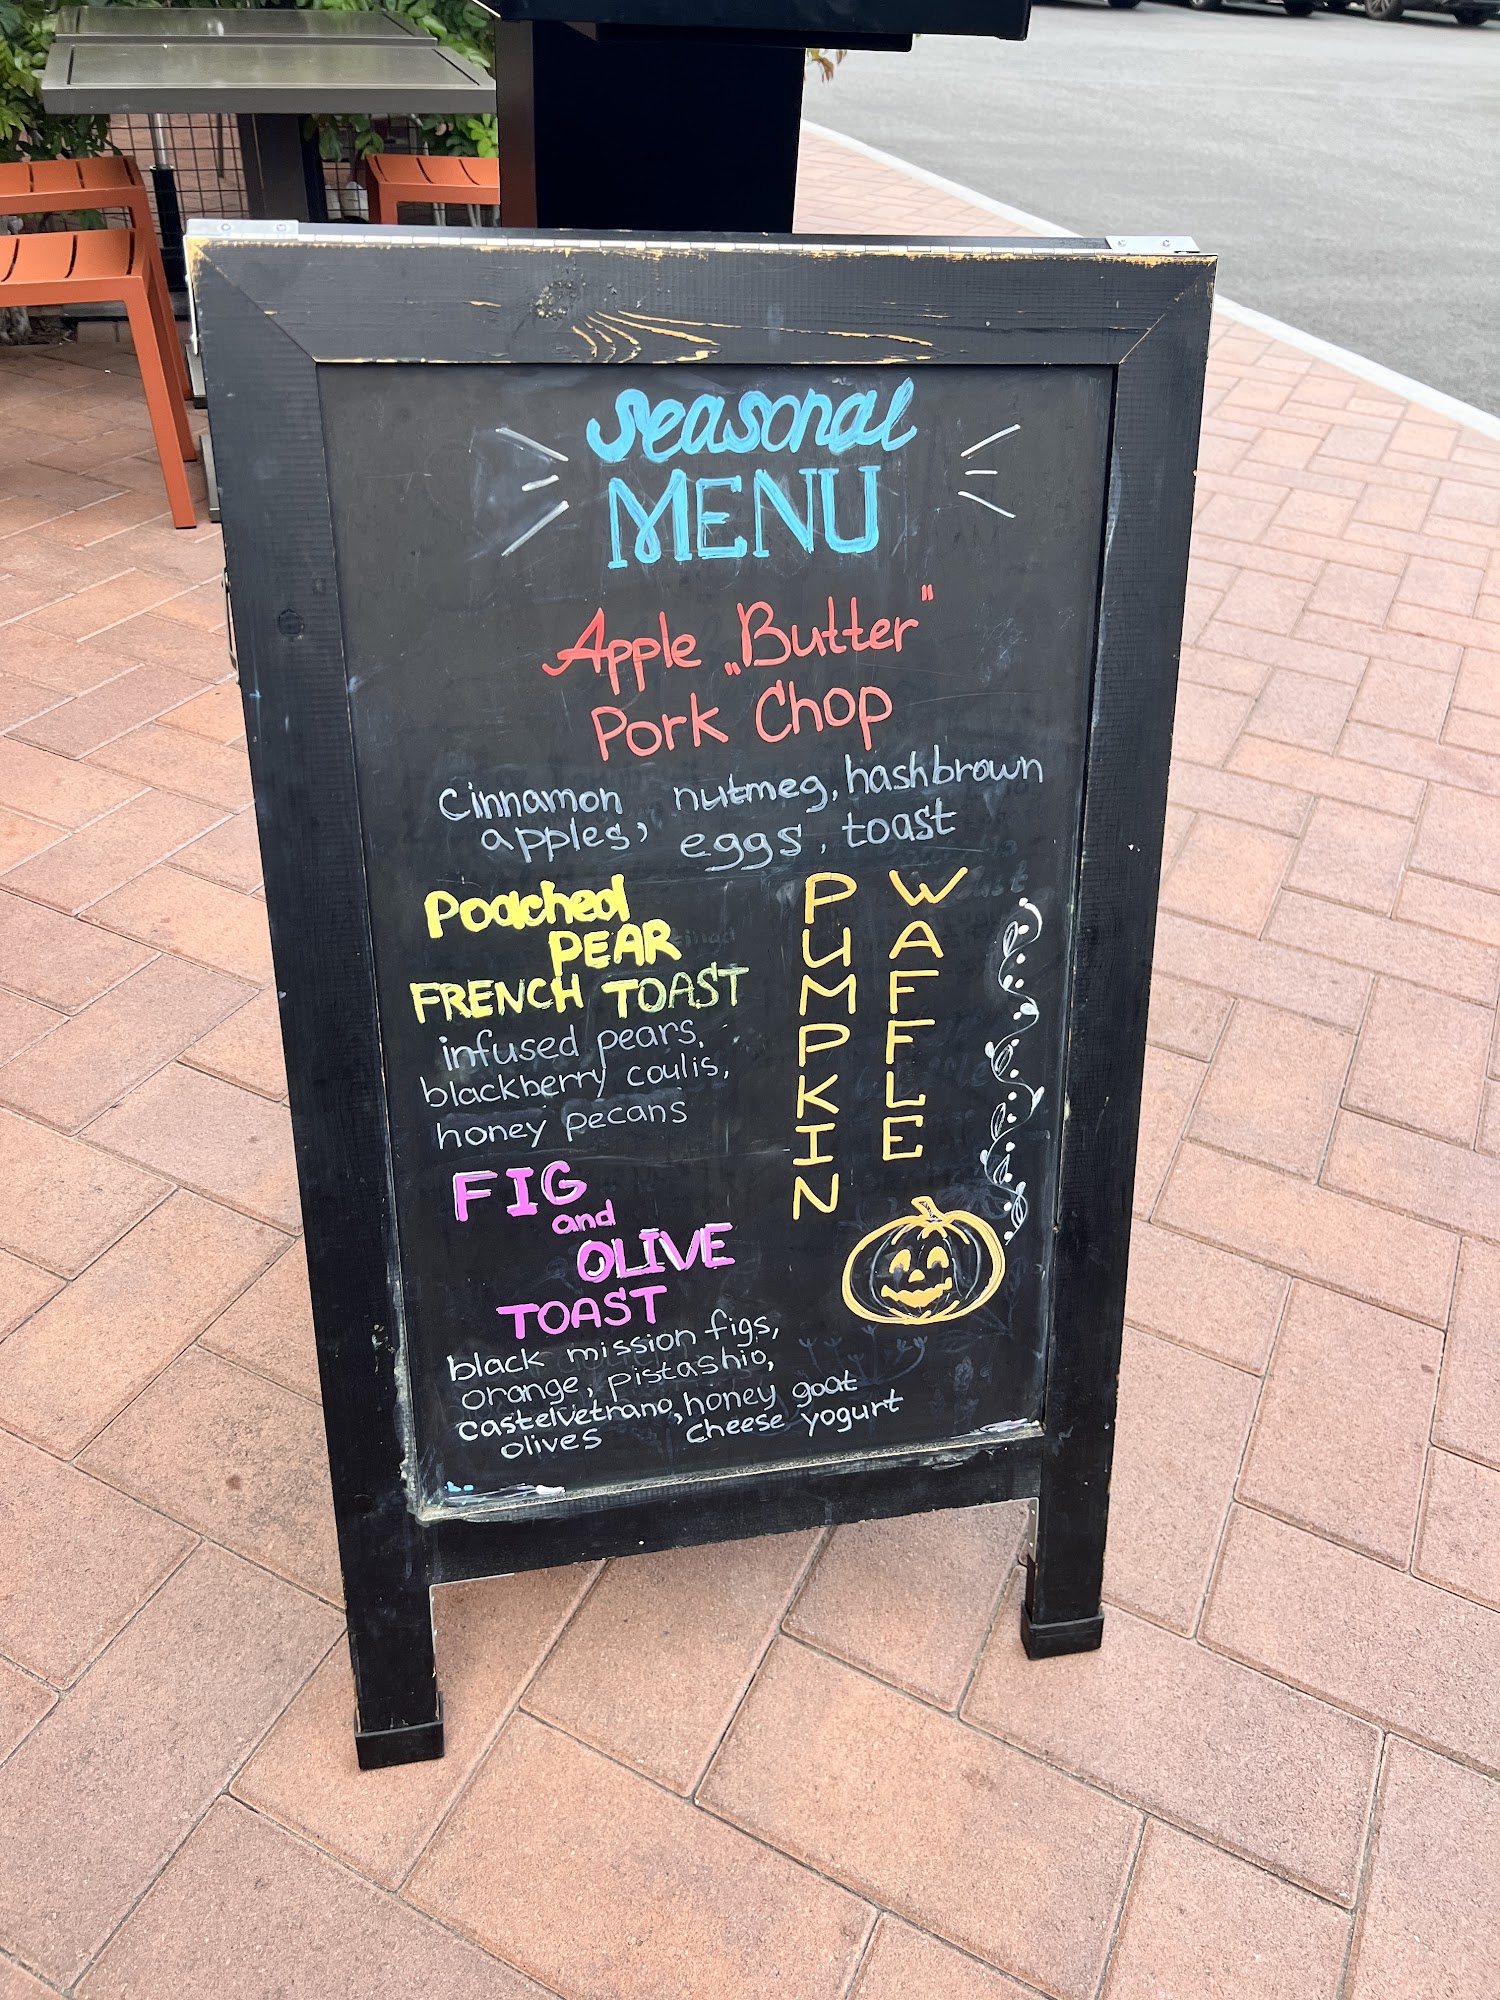 seasonal
MENU
Apple „Butter"
Pork Chop
Cinnamon nutmeg, hashbrown
apples, eggs, toast
Poached
PEAR
FRENCH TOAST
infused pears,
blackberry coulis,
honey pecans
PUMPKIN
WAFFLE
FIG
and
OLIVE
TOAST
black mission figs,
orange, pistashio,
castelvetrano, honey goat
olives cheese yogurt